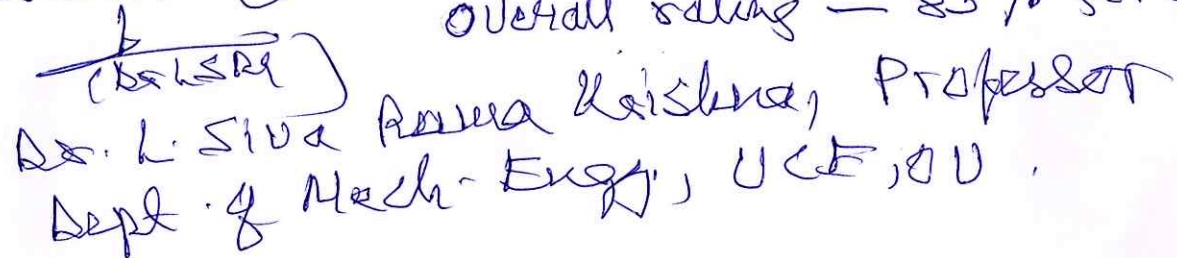 Overall rating — 85 %
(Dr LSRK)
Dr. L. Siva Rama Krishna, Professor
Dept. of Mech. Engg., UCE, OU.